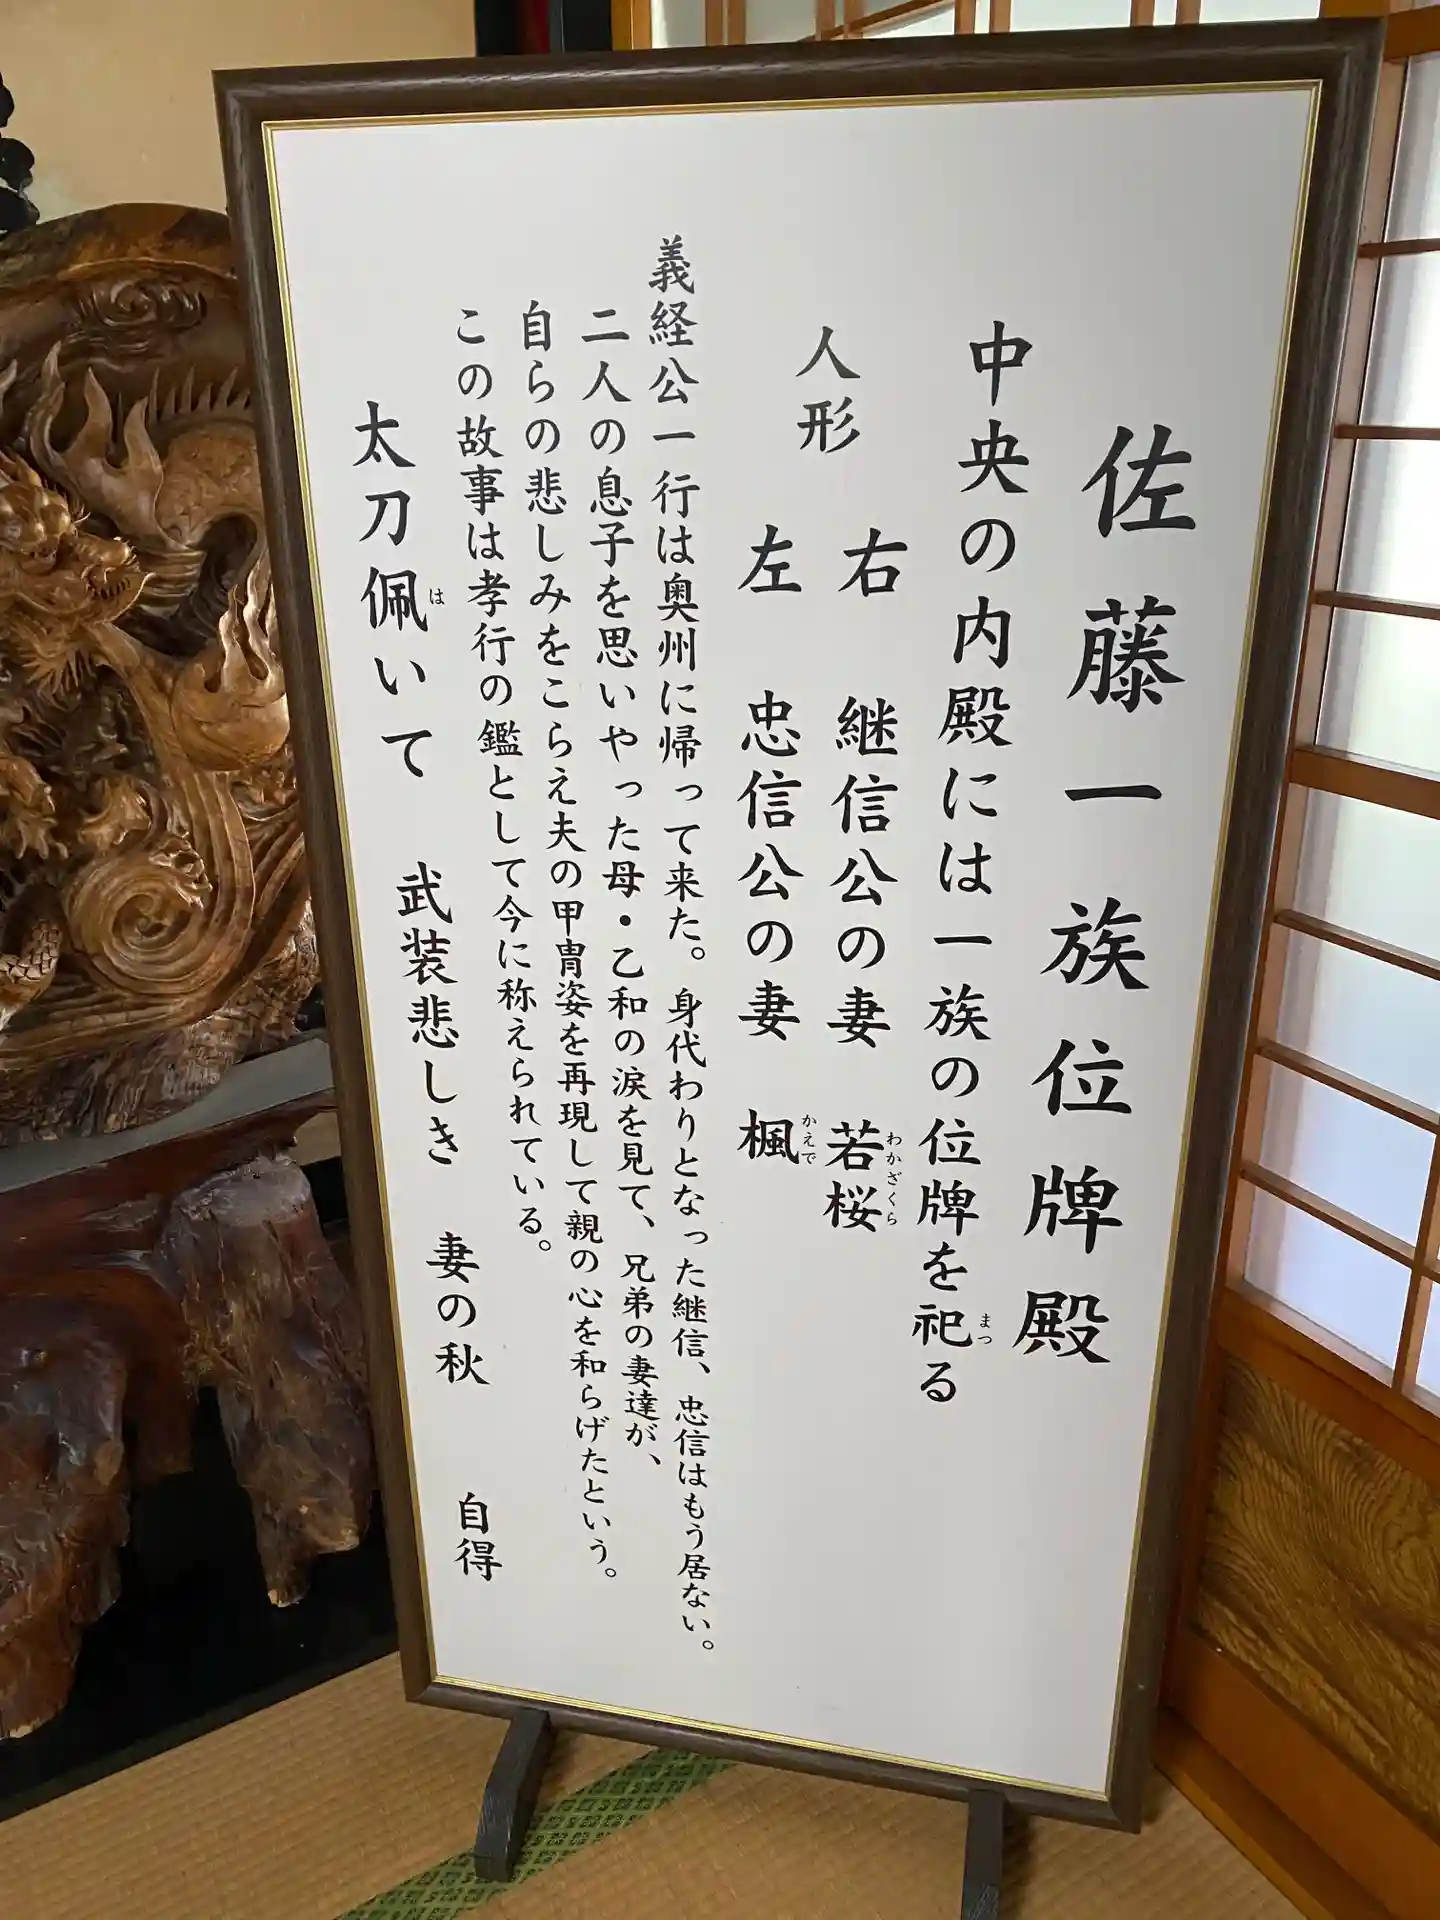 佐藤一族位牌殿
中央の内殿には一族の位牌を祀る
まつ
人形
右 継信公の妻 若桜
わかざくら
左 忠信公の妻 楓
かえで
義経公一行は奥州に帰って来た。身代わりとなった継信、忠信はもう居ない。
二人の息子を思いやった母・乙和の涙を見て、兄弟の妻達が、
自らの悲しみをこらえ夫の甲冑姿を再現して親の心を和らげたという。
この故事は孝行の鑑として今に称えられている。
太刀佩いて 武装悲しき 妻の秋 自得
は